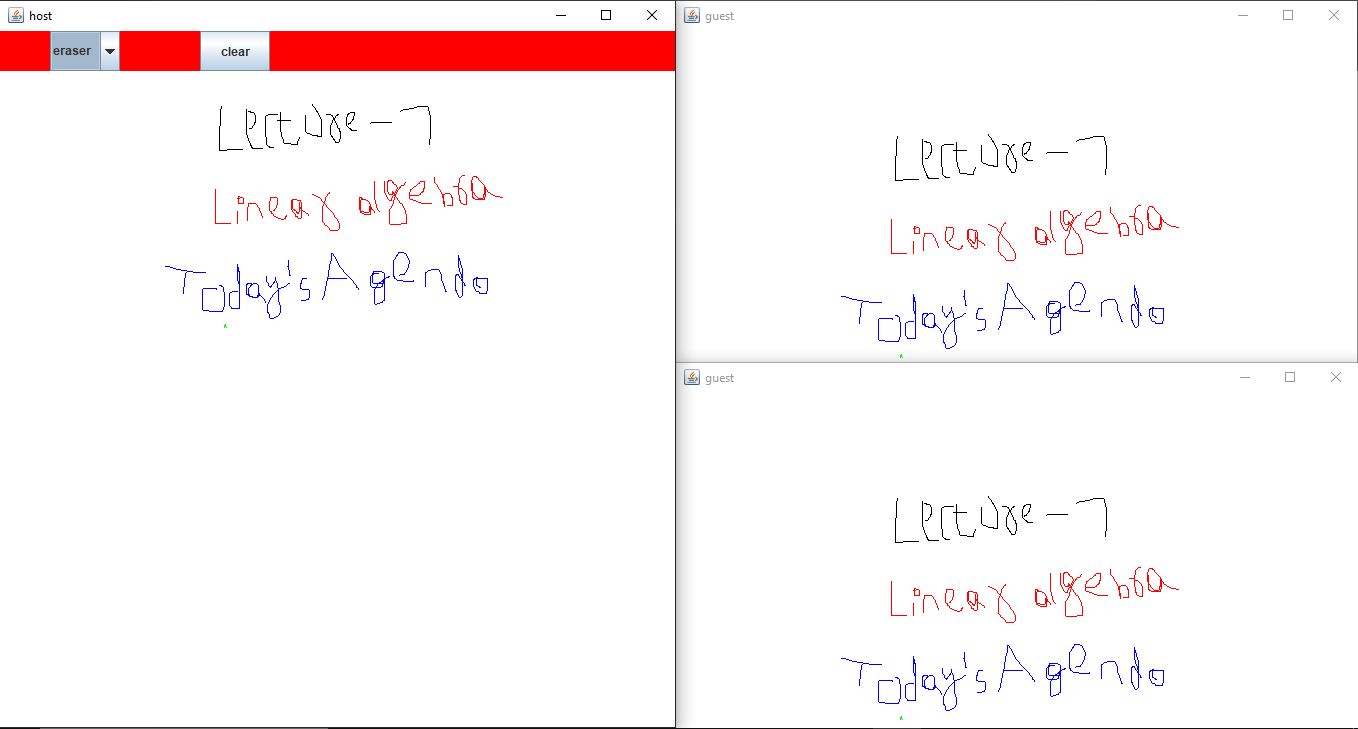 host
eraser
clear
Lecture-7
Linear algebra
Today's Agenda
guest
Lecture-7
Linear algebra
Today's Agenda
guest
Lecture-7
Linear algebra
Today's Agenda